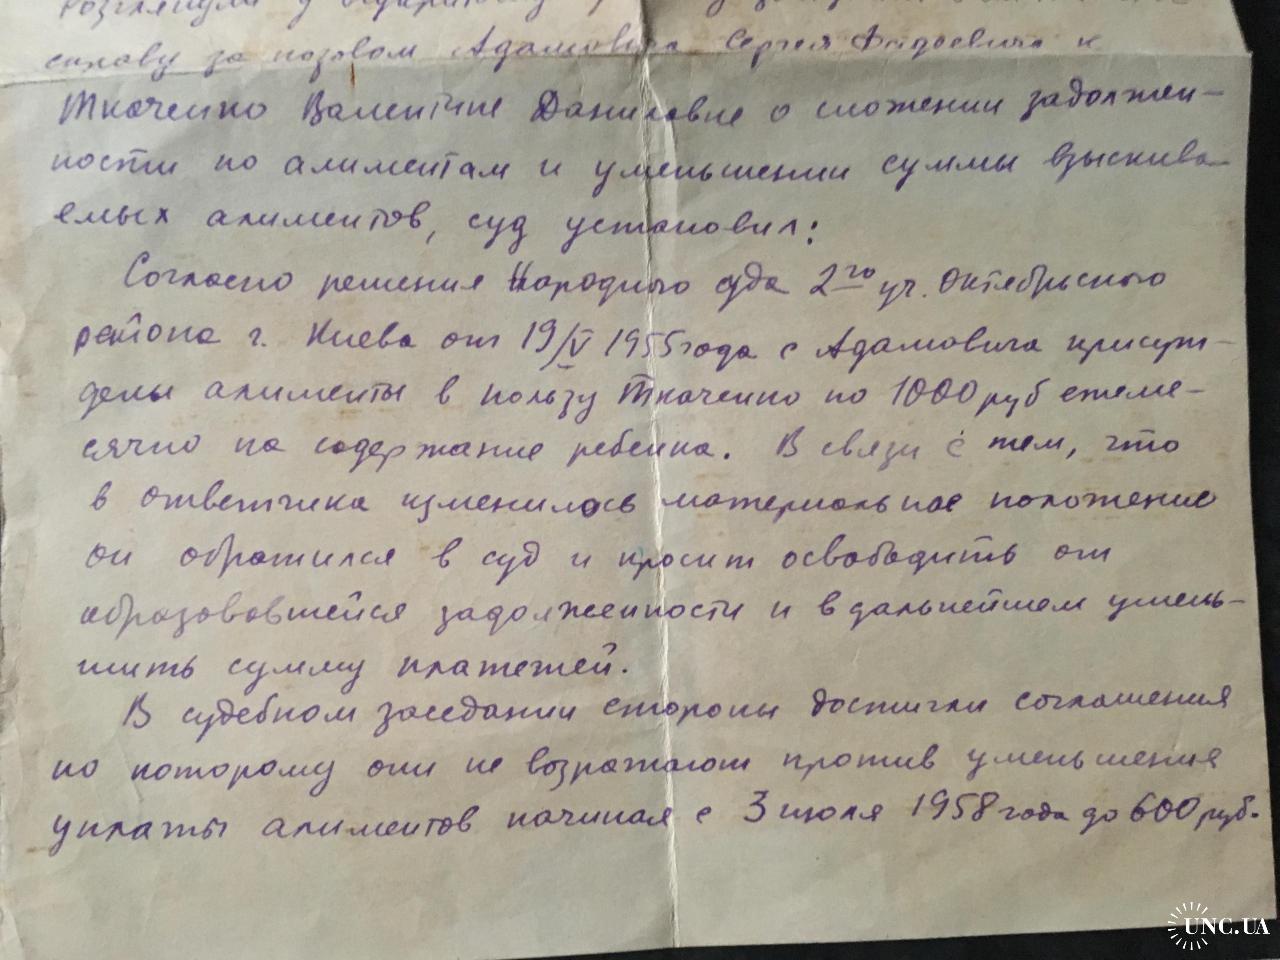 справу за позвом Адамовича Сергея Фадеевича к
Ткаченко Валентине Даниловне о сложении задолжен-
ности по алиментам и уменьшении суммы взыскива-
емых алиментов, суд установил:
Согласно решения Народного суда 2го уч. Октябрьского
района г. Киева от 19/V 1955 года с Адамовича присуж-
дены алименты в пользу Ткаченко по 1000 руб ежеме-
сячно на содержание ребенка. В связи с тем, что
в ответчика изменилось материальное положение
он обратился в суд и просит освободить от
образовавшейся задолженности и в дальнейшем умень-
шить сумму платежей.
В судебном заседании стороны достигли соглашения
по которому они не возражают против уменьшения
уплаты алиментов начиная с 3 июля 1958 года до 600 руб.
UNC.UA